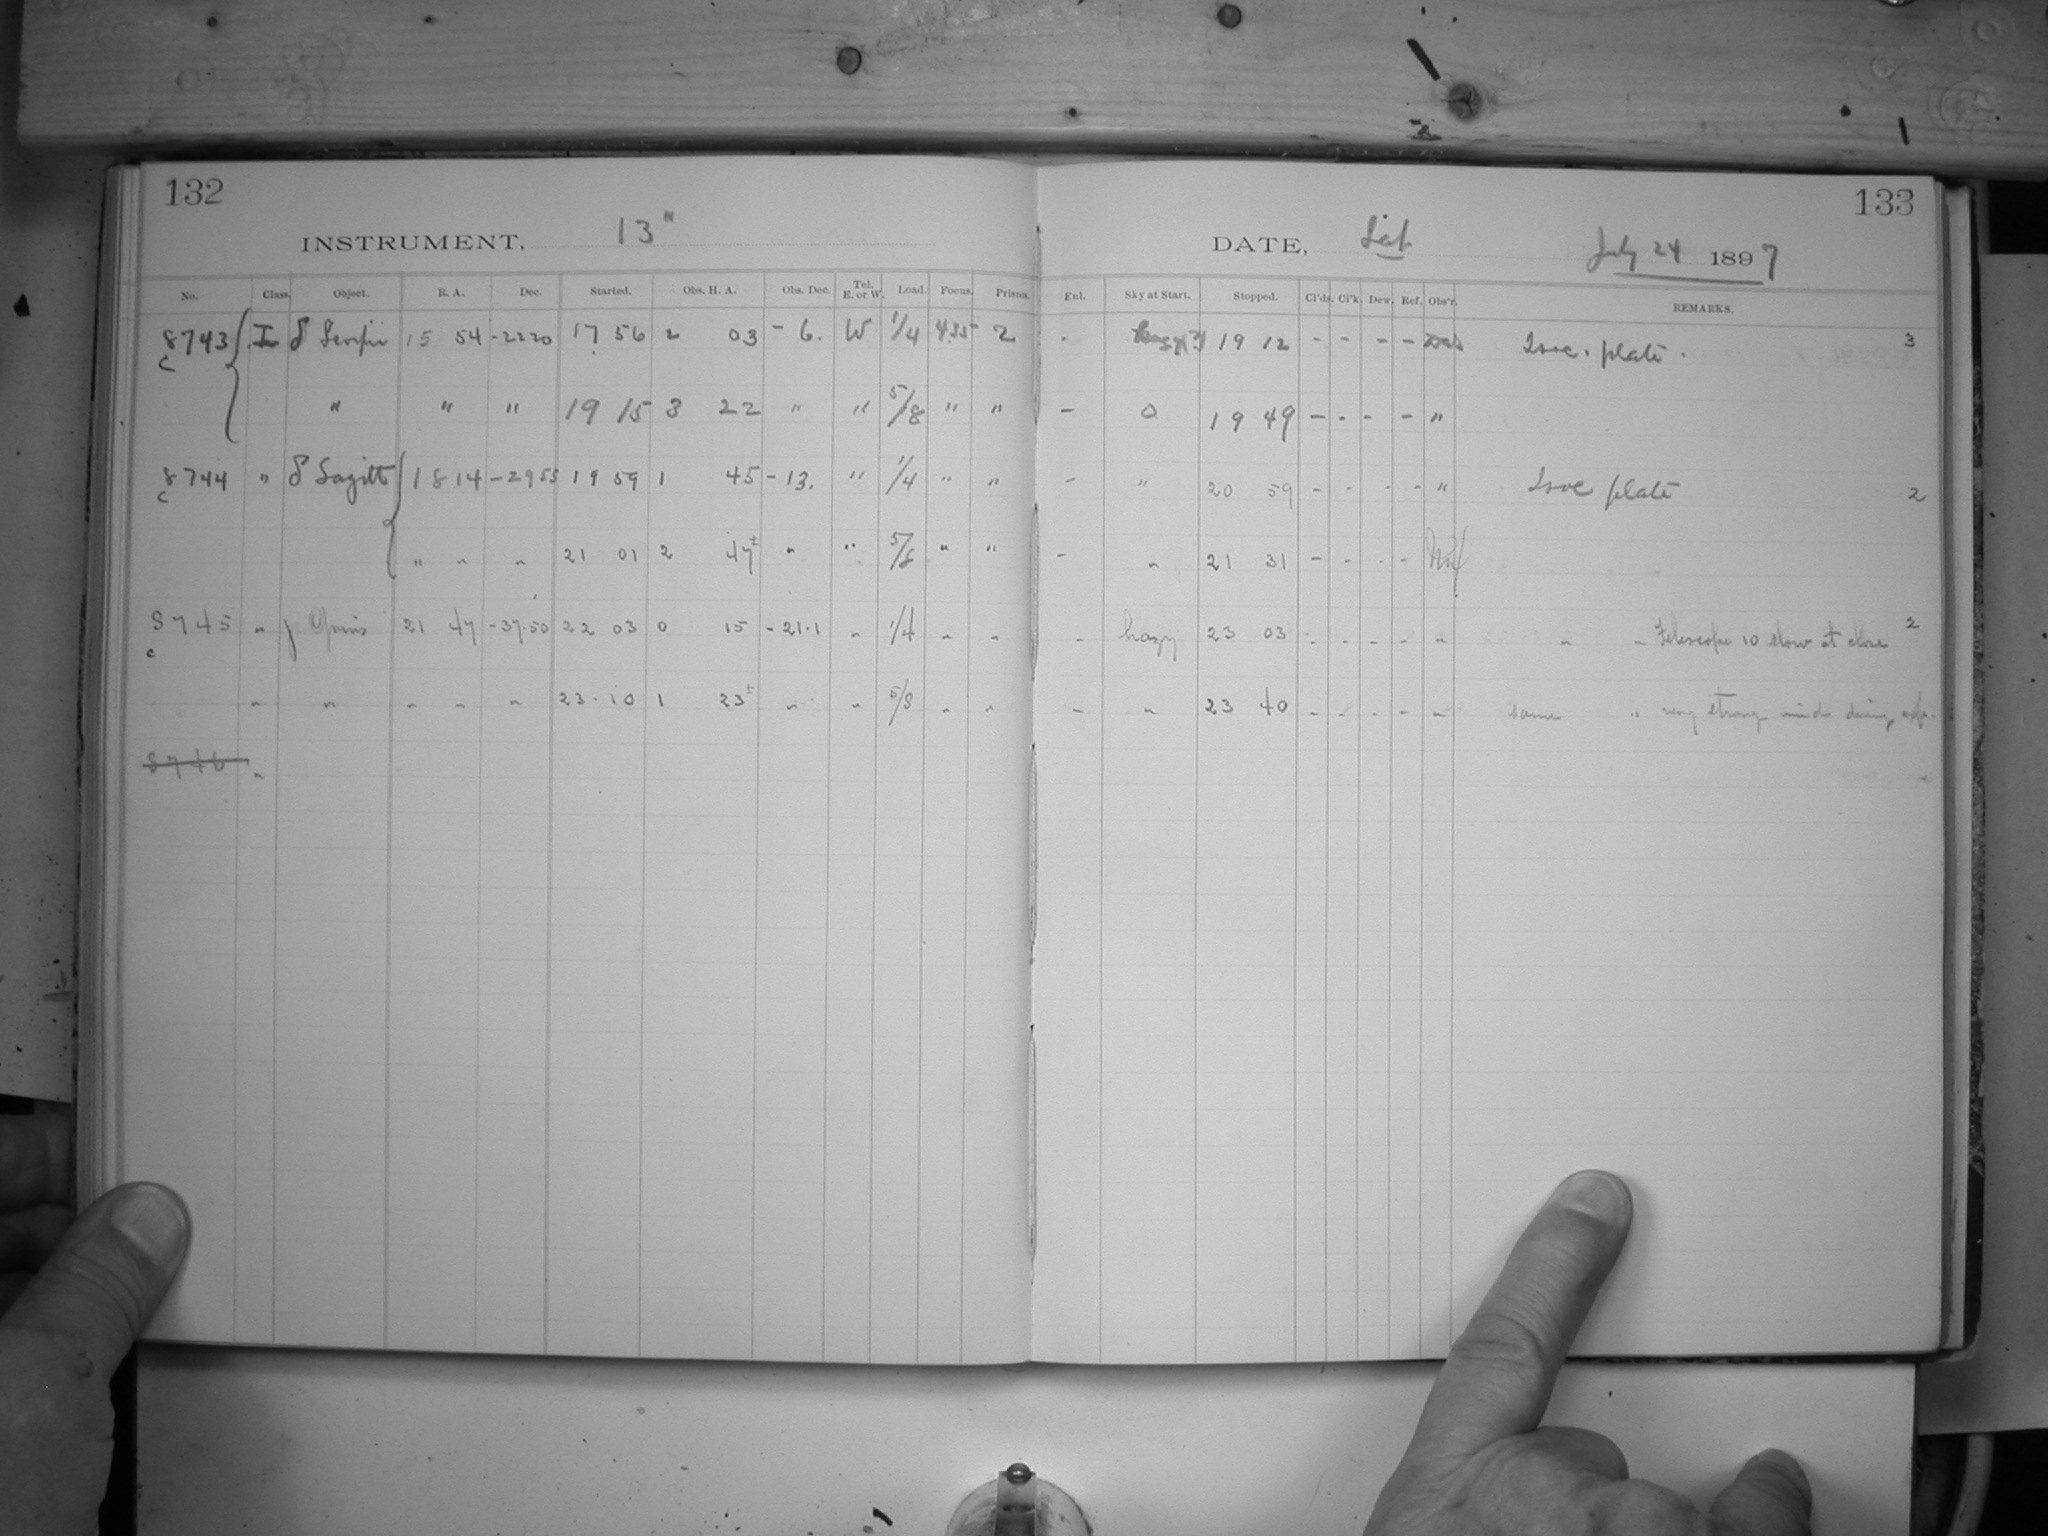 132
133
INSTRUMENT, 13"
DATE, Sat. July 24 1897
No. Class. Object. R. A. Dec. Started. Obs. H. A. Obs. Dec. Tel. E. or W. Load. Focus. Prisms. Enl. Sky at Start. Stopped. Cl'ds. Cl'k. Dew. Ref. Obs'r. REMARKS.
8743 c I δ Scorpii 15 54 -22 20 17 56 2 03 - 6. W 1/4 4.35 2 - 19 12 - - - - Isoc. plate. 3
" " " 19 15 3 22 " " 5/8 " " - 0 19 49 - - - - "
8744 c " δ Sagitt 18 14 -29 55 19 59 1 45 -13. " 1/4 " " - " 20 59 - - - - " Isoc plate 2
" " " 21 01 2 47± " " 5/8 " " - " 21 31 - - - -
8745 c " γ Gruis 21 47 -37.50 22 03 0 15 -21.1 " 1/4 " " - hazy 23 03 - - - - " " " Telescope 10 slow at close 2
" " " " " 23.10 1 23± " " 5/8 " " - " 23 40 - - - - " same " very strong wind during exp.
8746 "